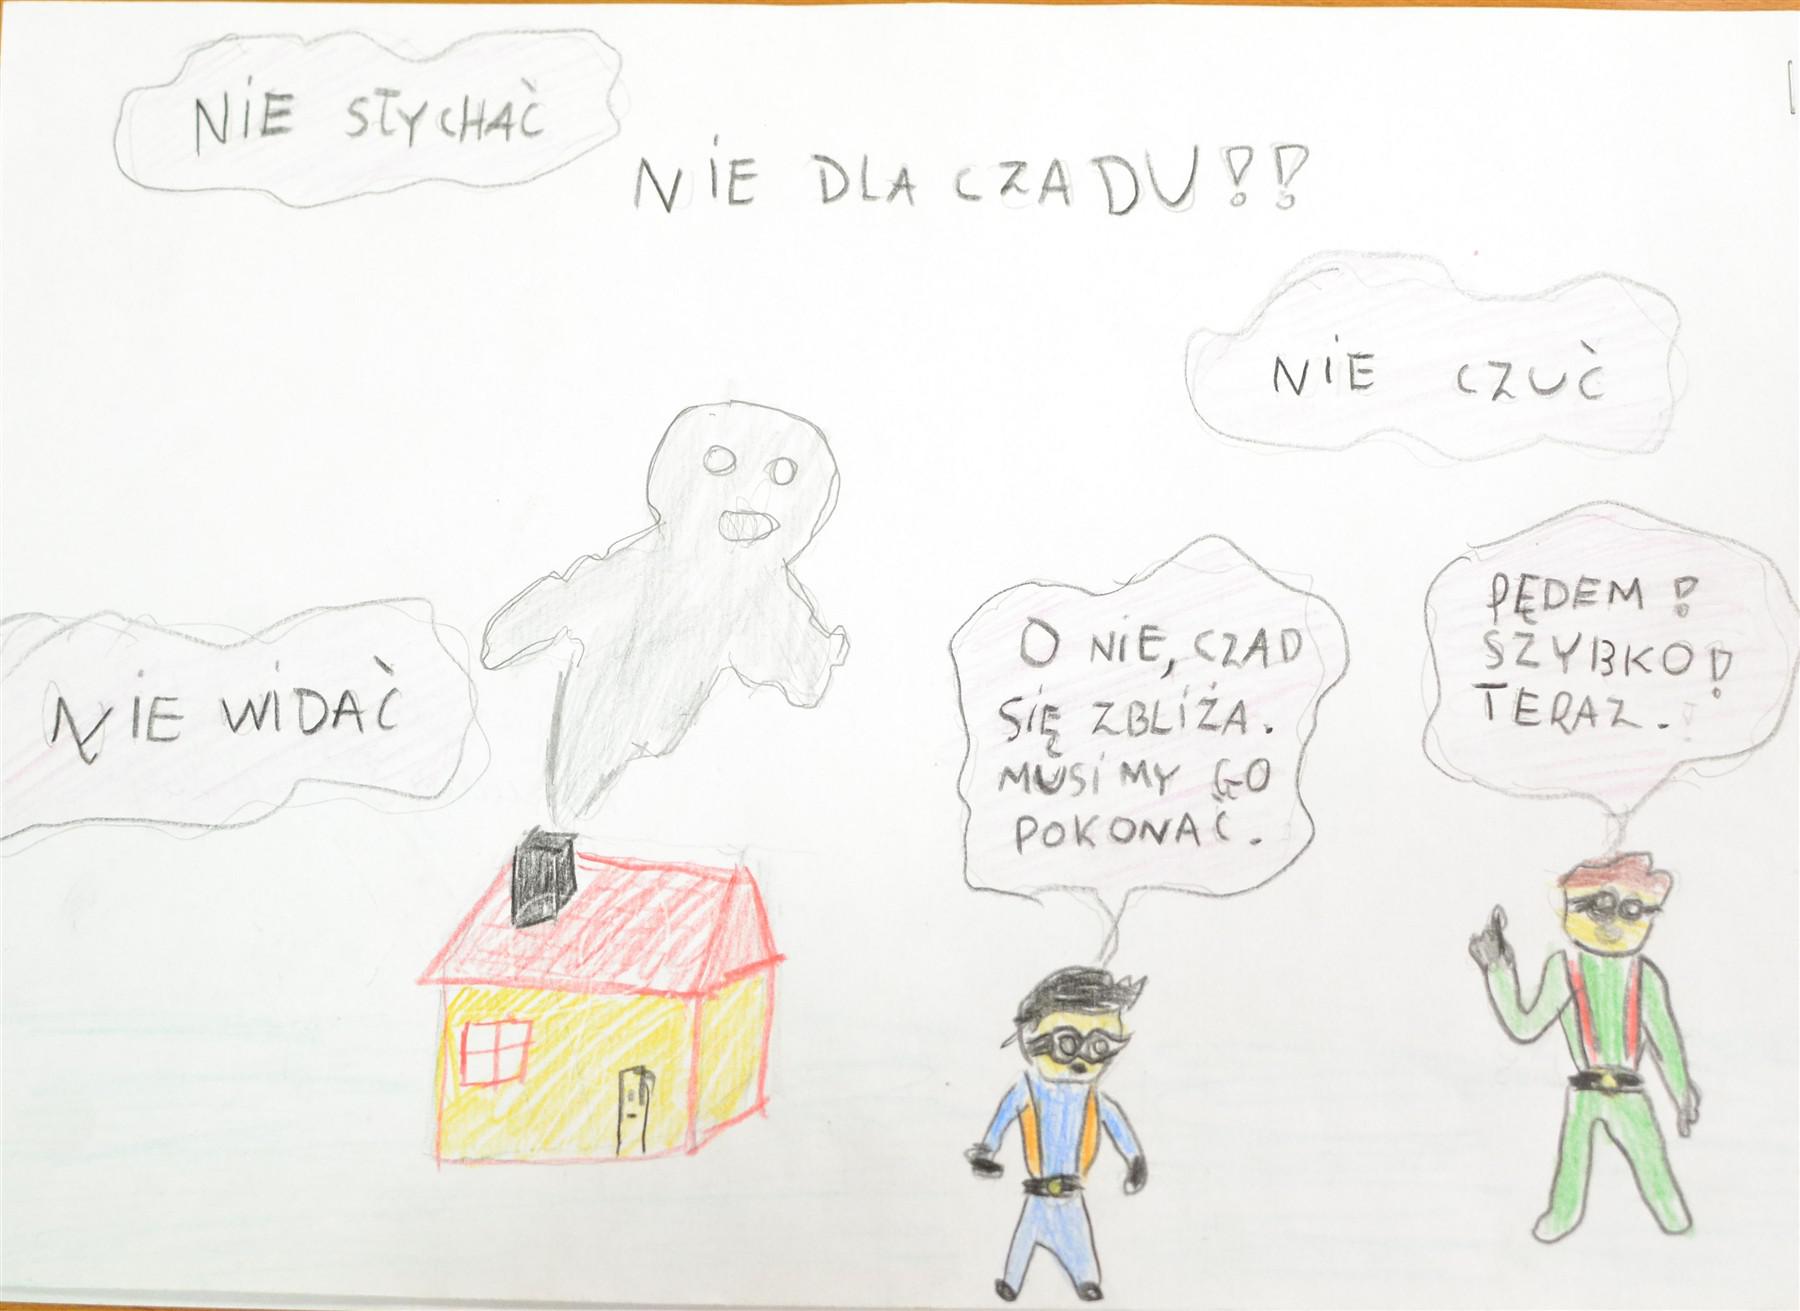 NIE SŁYCHAĆ
NIE DLA CZADU!!
NIE CZUĆ
NIE WIDAĆ
O NIE, CZAD
SIĘ ZBLIŻA.
MUSIMY GO
POKONAĆ.
PĘDEM!
SZYBKO!
TERAZ.